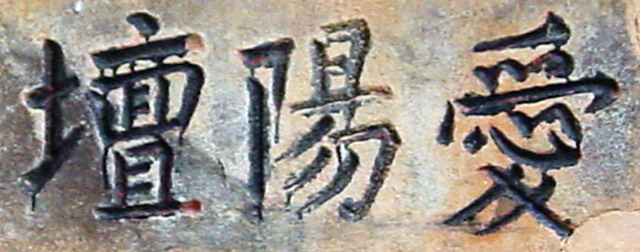 愛陽壇